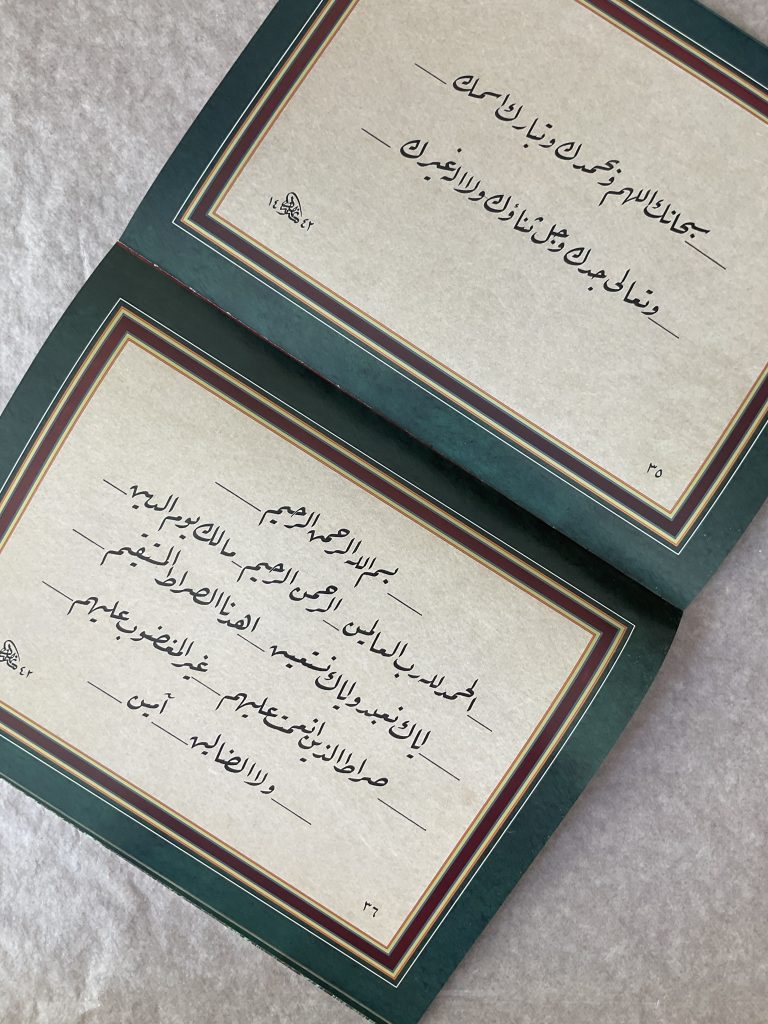 سبحانك اللهم وبحمدك وتبارك اسمك
وتعالى جدك وجل ثناؤك ولا اله غيرك
١٤ ٤٢
٣٥
بسم الله الرحمن الرحيم
الحمد لله رب العالمين الرحمن الرحيم مالك يوم الدين
اياك نعبد واياك نستعين اهدنا الصراط المستقيم
صراط الذين انعمت عليهم غير المغضوب عليهم
ولا الضالين آمين
٤٢
٣٦